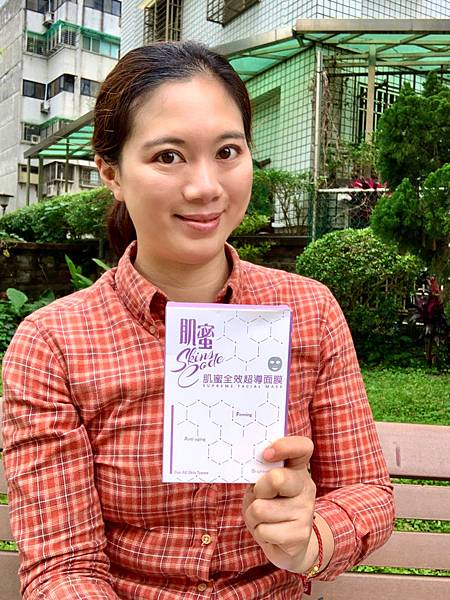 肌蜜
Skins
Code
肌蜜全效超導面膜
SUPREME FACIAL MASK
Firming
Anti-aging
For All Skin Types